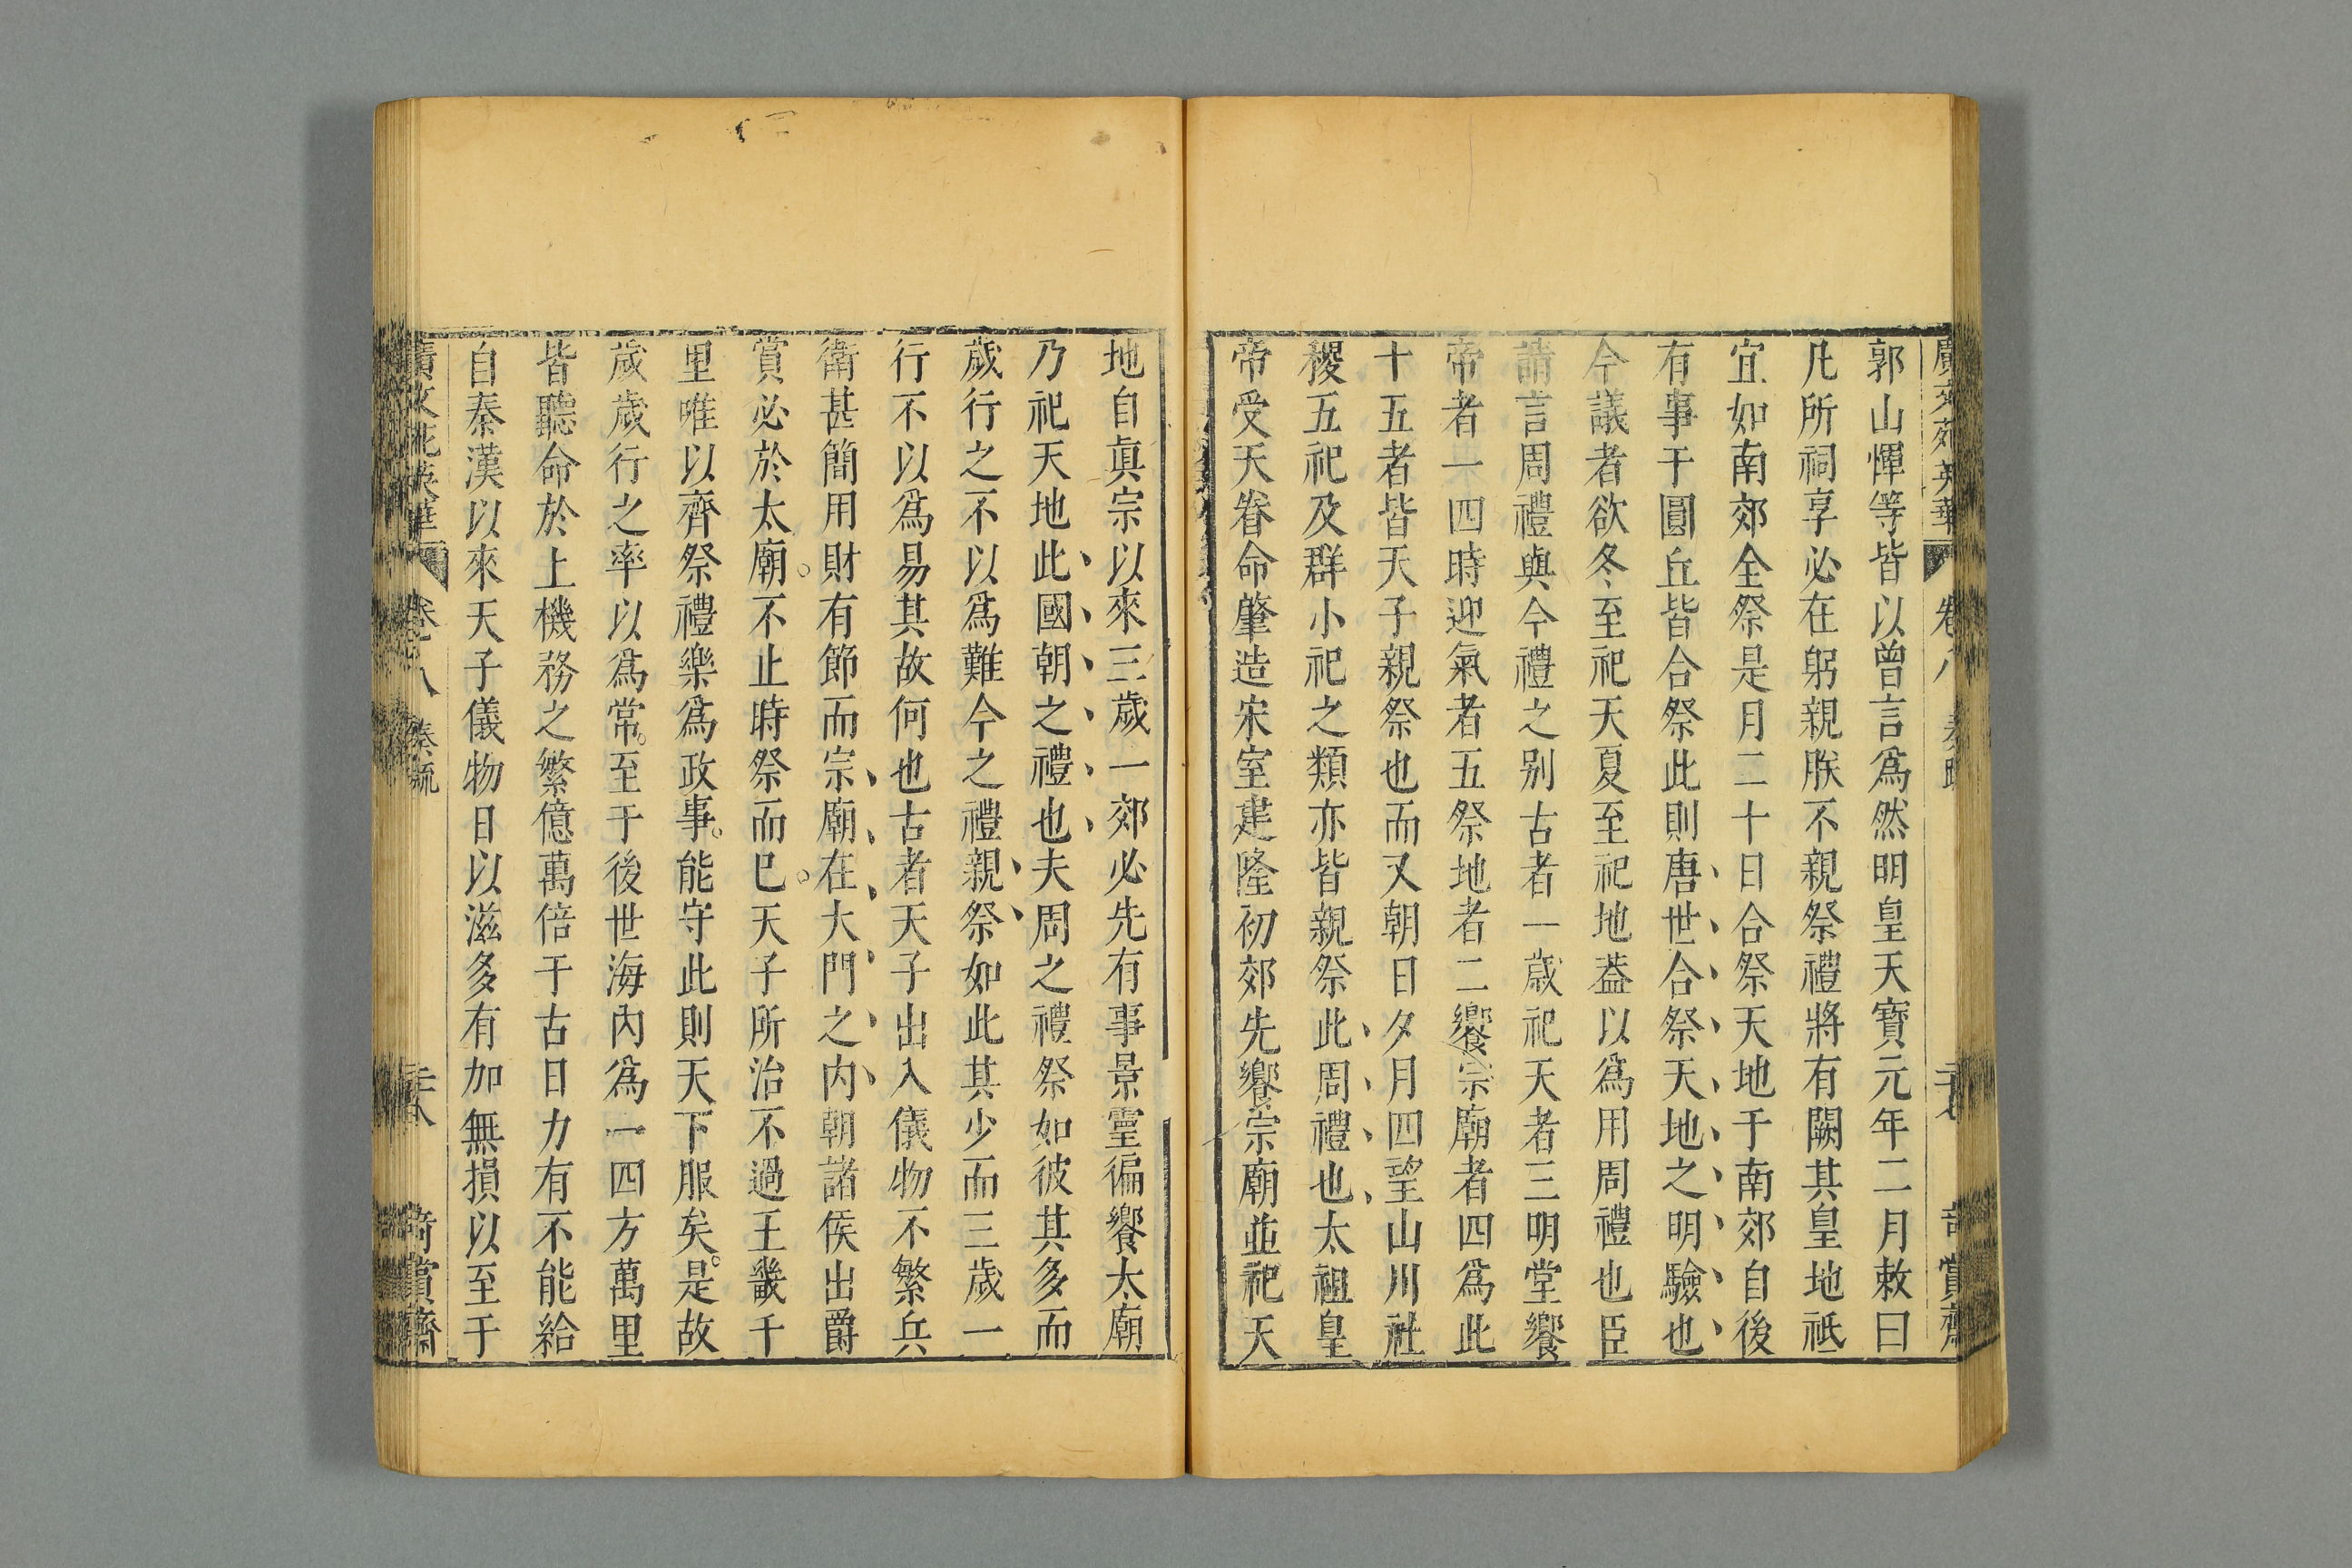 廣文苑英華 卷八 奏疏 賞齋
郭山惲等皆以曾言爲然明皇天寶元年二月敕曰
凡所祠享必在躬親朕不親祭禮將有闕其皇地祇
宜如南郊全祭是月二十日合祭天地于南郊自後
有事于圓丘皆合祭此則唐世合祭天地之明驗也
今議者欲冬至祀天夏至祀地葢以爲用周禮也臣
請言周禮與今禮之别古者一歲祀天者三明堂饗
帝者一四時迎氣者五祭地者二饗宗廟者四爲此
十五者皆天子親祭也而又朝日夕月四望山川社
稷五祀及群小祀之類亦皆親祭此周禮也太祖皇
帝受天眷命肇造宋室建隆初郊先饗宗廟並祀天
地自眞宗以來三歲一郊必先有事景靈徧饗太廟
乃祀天地此國朝之禮也夫周之禮祭如彼其多而
歲行之不以爲難今之禮親祭如此其少而三歲一
行不以爲易其故何也古者天子出入儀物不繁兵
衛甚簡用財有節而宗廟在大門之内朝諸侯出爵
賞必於太廟不止時祭而巳天子所治不過王畿千
里唯以齊祭禮樂爲政事能守此則天下服矣是故
歲歲行之率以爲常至于後世海内爲一四方萬里
皆聽命於上機務之繁億萬倍于古日力有不能給
自秦漢以來天子儀物日以滋多有加無損以至于
廣文苑英華 卷八 奏疏 二十八 奇賞齋